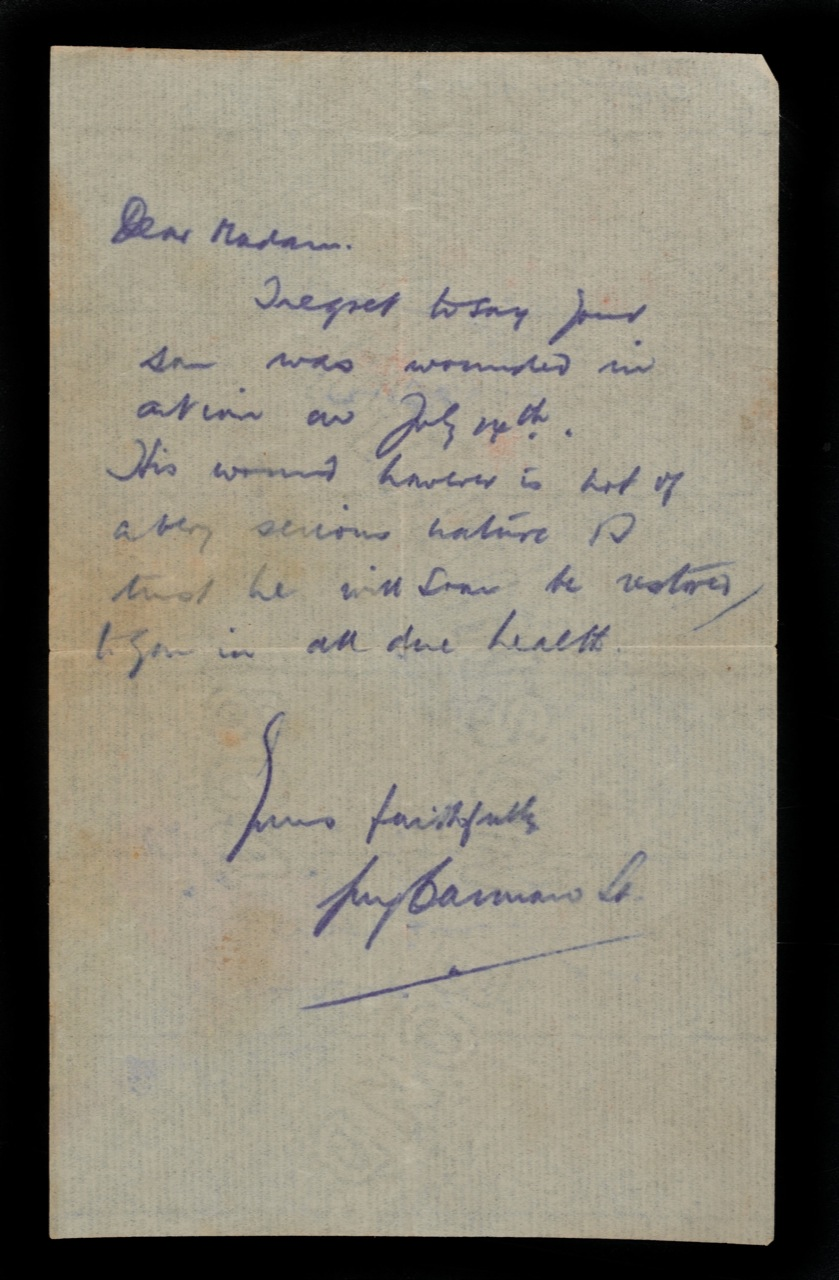 Dear Madam.
I regret to say your
son was wounded in
action on July 14th.
His wound however is not of
a very serious nature & I
trust he will soon be restored
to you in all due health.
Yours faithfully
Lt.